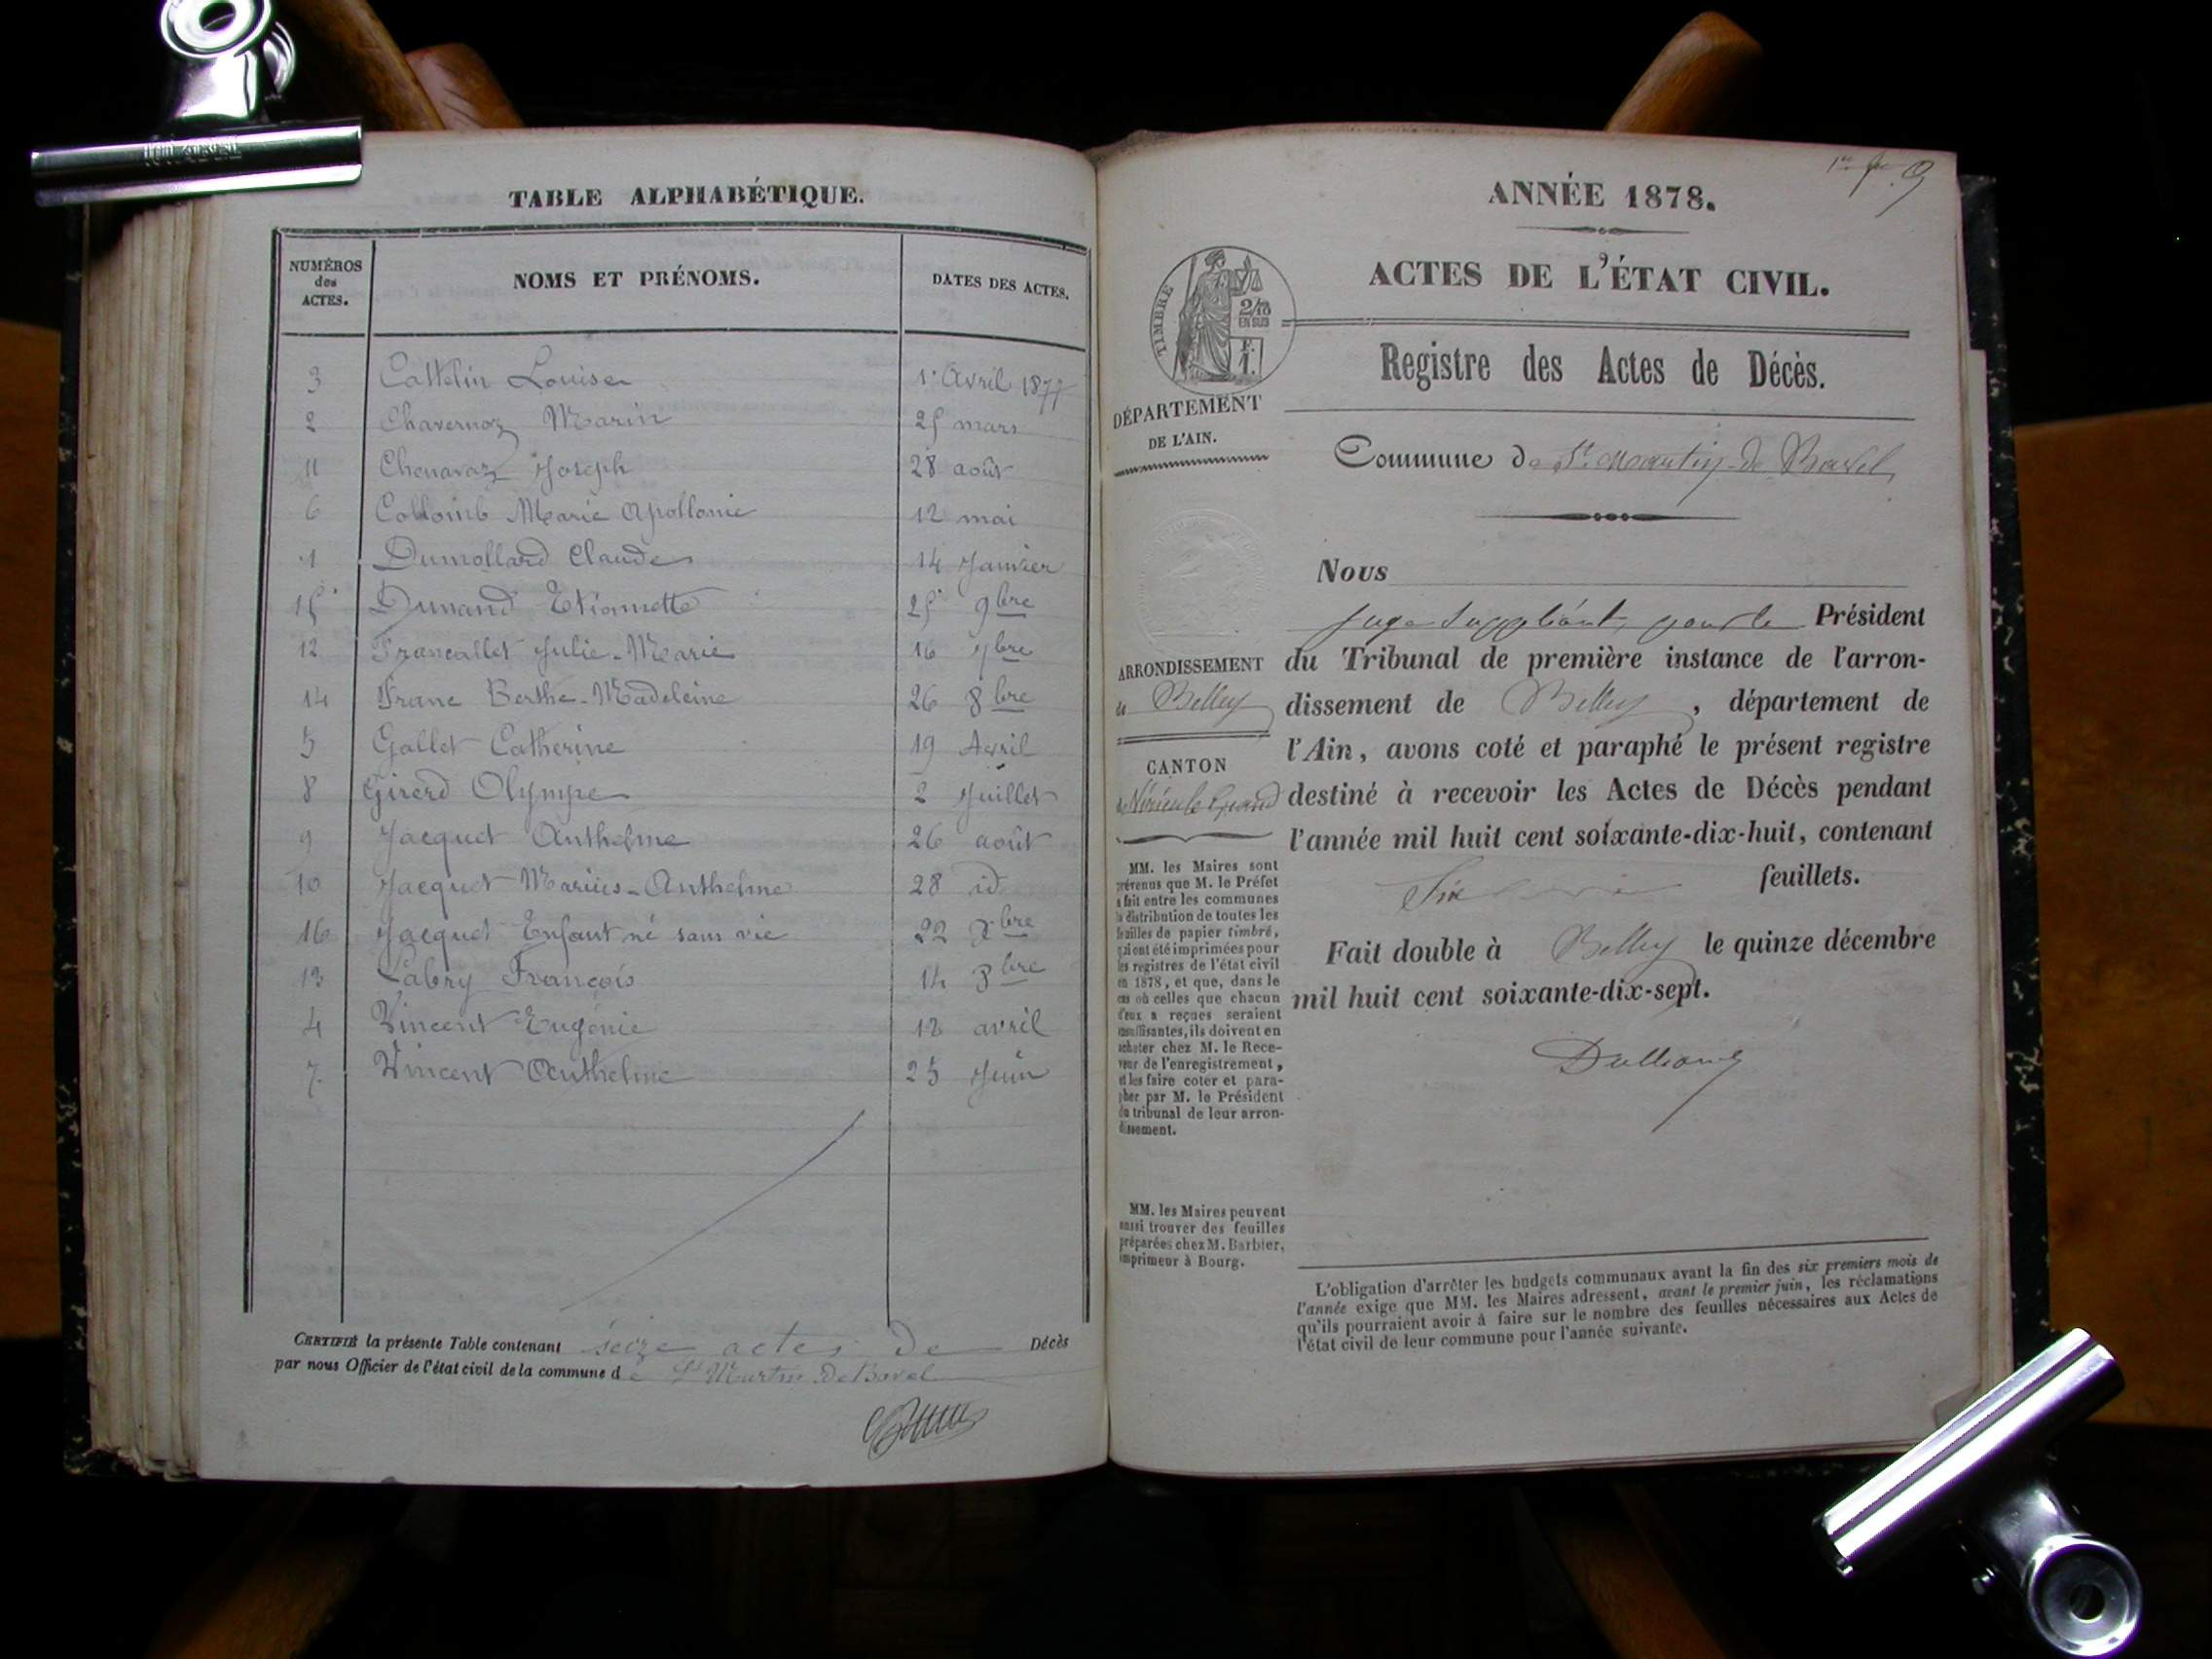 TABLE ALPHABÉTIQUE.
NUMÉROS des ACTES. NOMS ET PRÉNOMS. DATES DES ACTES.
3 Cattelin Louise 1er Avril 1877
2 Chavernoz Marin 25 mars
11 Chenavaz Joseph 28 août
6 Collomb Marie Apollonie 12 mai
1 Dumollard Claude 14 Janvier
15 Dunand Etiennette 25 9bre
12 Francallet Julie-Marie 16 7bre
14 Franc Berthe-Madeleine 26 8bre
5 Gallet Catherine 19 Avril
8 Girerd Olympe 2 Juillet
9 Jacquet Anthelme 26 août
10 Jacquet Marius-Anthelme 28 id
16 Jacquet Enfant né sans vie 22 Xbre
13 Labry François 14 8bre
4 Vincent Eugénie 12 avril
7 Vincent Anthelme 25 Juin
CERTIFIÉ la présente Table contenant seize actes de Décès
par nous Officier de l'état civil de la commune de St Martin de Bavel
ANNÉE 1878.
ACTES DE L'ÉTAT CIVIL.
TIMBRE
2/10
EN SUS
F.
1.
Registre des Actes de Décès.
DÉPARTEMENT
DE L'AIN.
Commune de St. Martin-de Bavel
Nous
Juge Suppléant, pour le Président
du Tribunal de première instance de l'arron-
dissement de Belley, département de
l'Ain, avons coté et paraphé le présent registre
destiné à recevoir les Actes de Décès pendant
l'année mil huit cent soixante-dix-huit, contenant
Six feuillets.
Fait double à Belley le quinze décembre
mil huit cent soixante-dix-sept.
ARRONDISSEMENT
de Belley
CANTON
de Virieu le Grand
MM. les Maires sont
prévenus que M. le Préfet
a fait entre les communes
la distribution de toutes les
feuilles de papier timbré,
qui ont été imprimées pour
les registres de l'état civil
en 1878, et que, dans le
cas où celles que chacun
d'eux a reçues seraient
insuffisantes, ils doivent en
acheter chez M. le Rece-
veur de l'enregistrement,
et les faire coter et para-
pher par M. le Président
du tribunal de leur arron-
dissement.
MM. les Maires peuvent
aussi trouver des feuilles
préparées chez M. Barbier,
imprimeur à Bourg.
L'obligation d'arrêter les budgets communaux avant la fin des six premiers mois de
l'année exige que MM. les Maires adressent, avant le premier juin, les réclamations
qu'ils pourraient avoir à faire sur le nombre des feuilles nécessaires aux Actes de
l'état civil de leur commune pour l'année suivante.